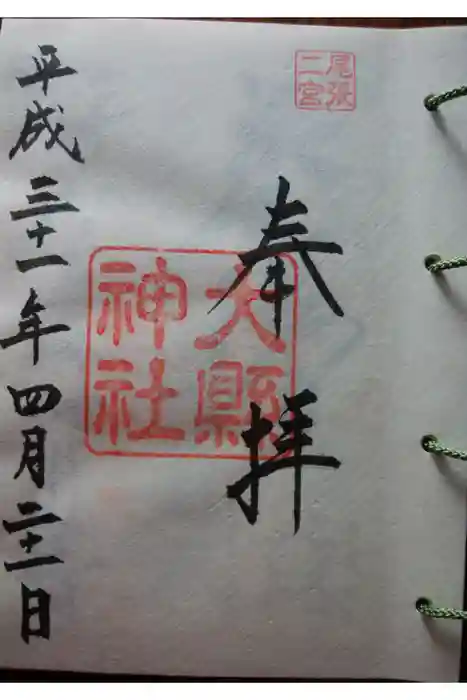 尾張
二宮
奉拝
大縣
神社
平成三十一年四月二十一日